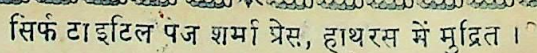 सिर्फ टाइटिल पेज शर्मा प्रेस, हाथरस में मुद्रित ।